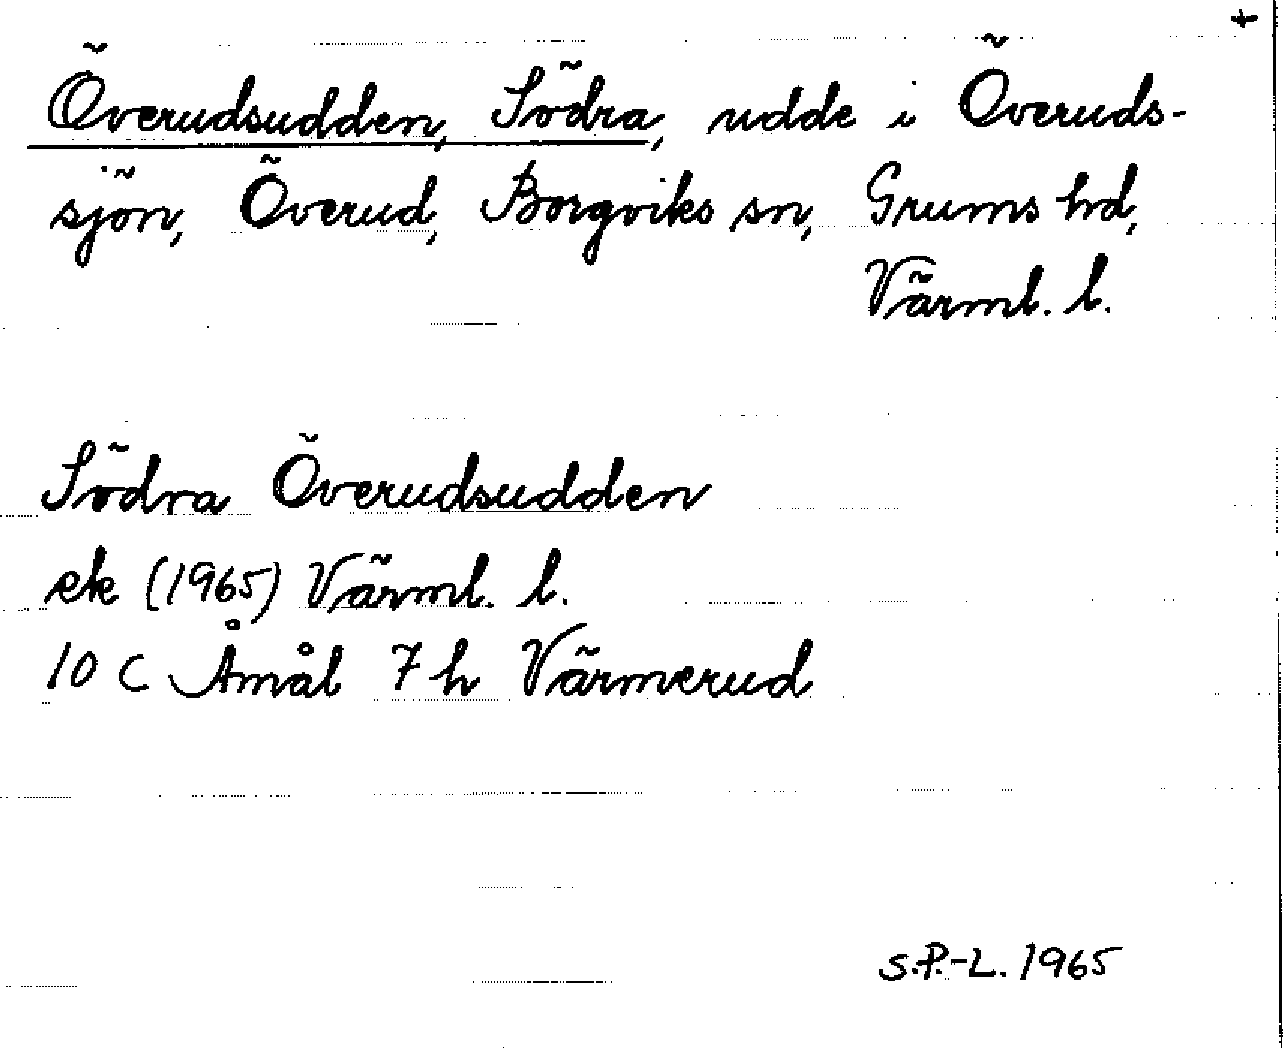 +
Överudsudden, Södra, udde i Överuds-
sjön, Överud, Borgviks sn, Grums hd,
Värml. l.
Södra Överudsudden
ek (1965) Värml. l.
10 C Åmål 7 h Värmerud
S.P.-L. 1965